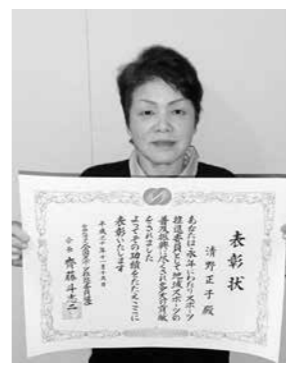 表彰状
清野正子殿
あなたは永年にわたりスポーツ
推進委員として地域スポーツの
普及振興に尽くされ多大な貢献
をされました
よってその功績をたたえここに
表彰いたします
平成三十年十一月十五日
会長 齊藤斗志二